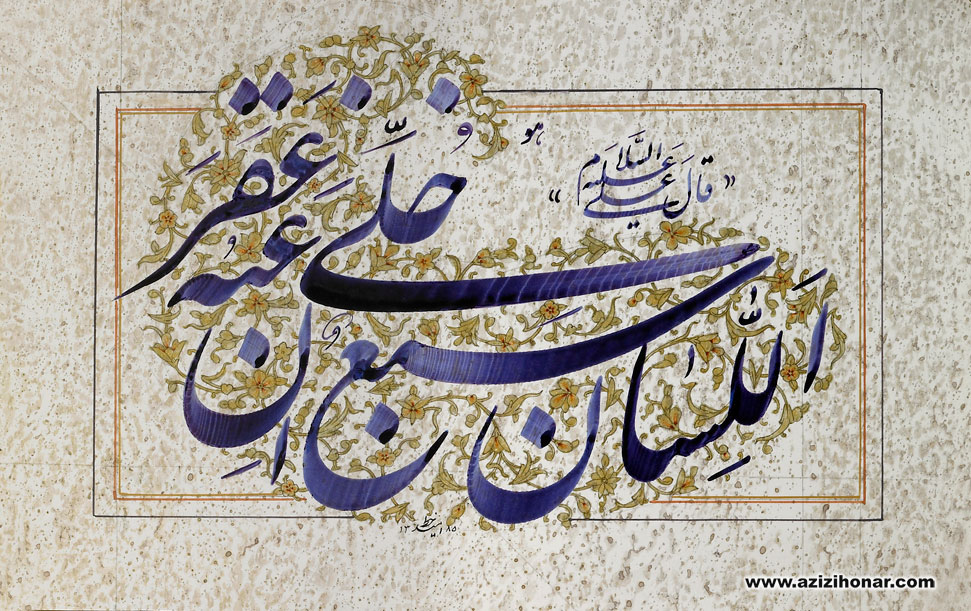 هو
«قال علی علیه السَّلام»
اَللِّسانُ سَبُعٌ اِن
خُلِّیَ عَنهُ عَقَرَ
www.azizihonar.com